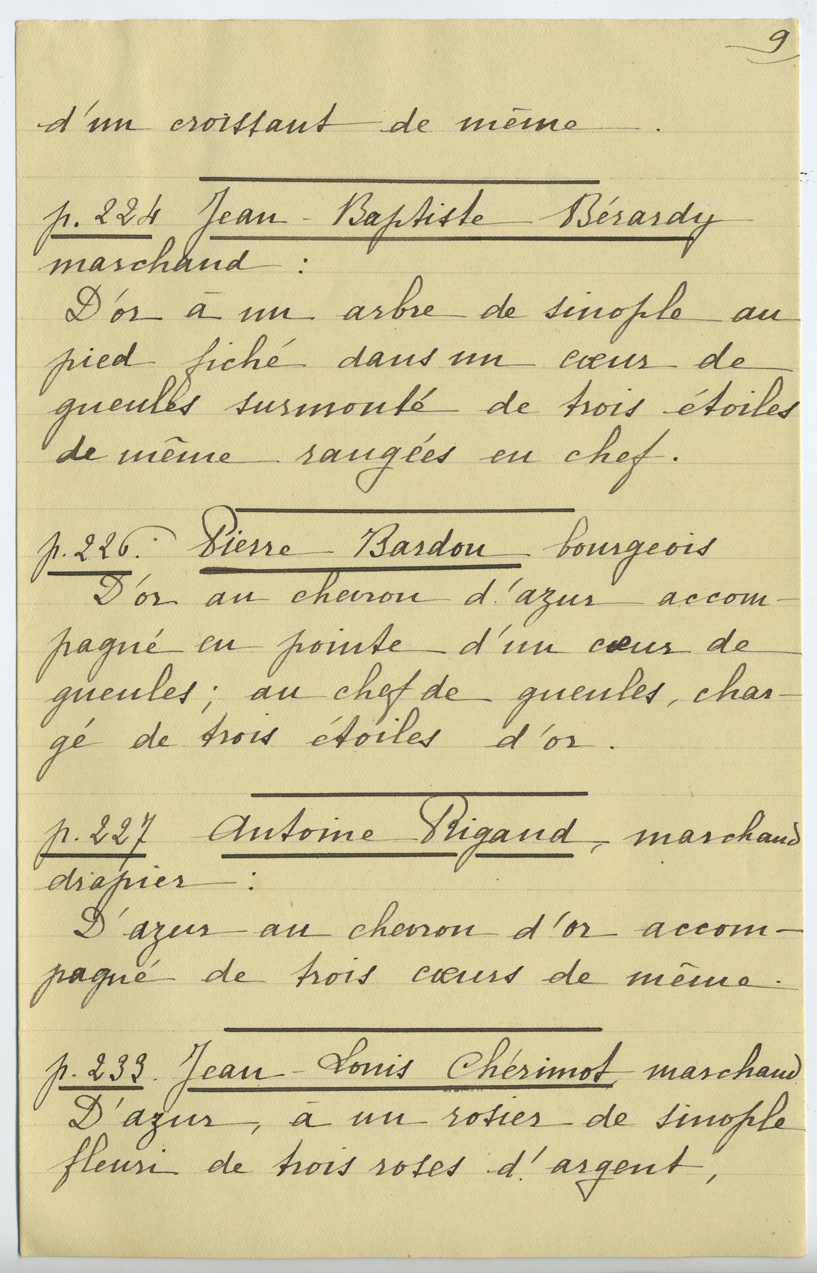 9
d'un croissant de même.
p. 224 Jean-Baptiste Bérardy
marchand :
D'or à un arbre de sinople au
pied fiché dans un cœur de
gueules surmonté de trois étoiles
de même rangées en chef.
p. 226. Pierre Bardou bourgeois
D'or au chevron d'azur accom-
pagné en pointe d'un cœur de
gueules ; au chef de gueules, char-
gé de trois étoiles d'or.
p. 227 Antoine Rigaud, marchand
drapier :
D'azur au chevron d'or accom-
pagné de trois cœurs de même.
p. 233. Jean-Louis Chérimot, marchand
D'azur, à un rosier de sinople
fleuri de trois roses d'argent,